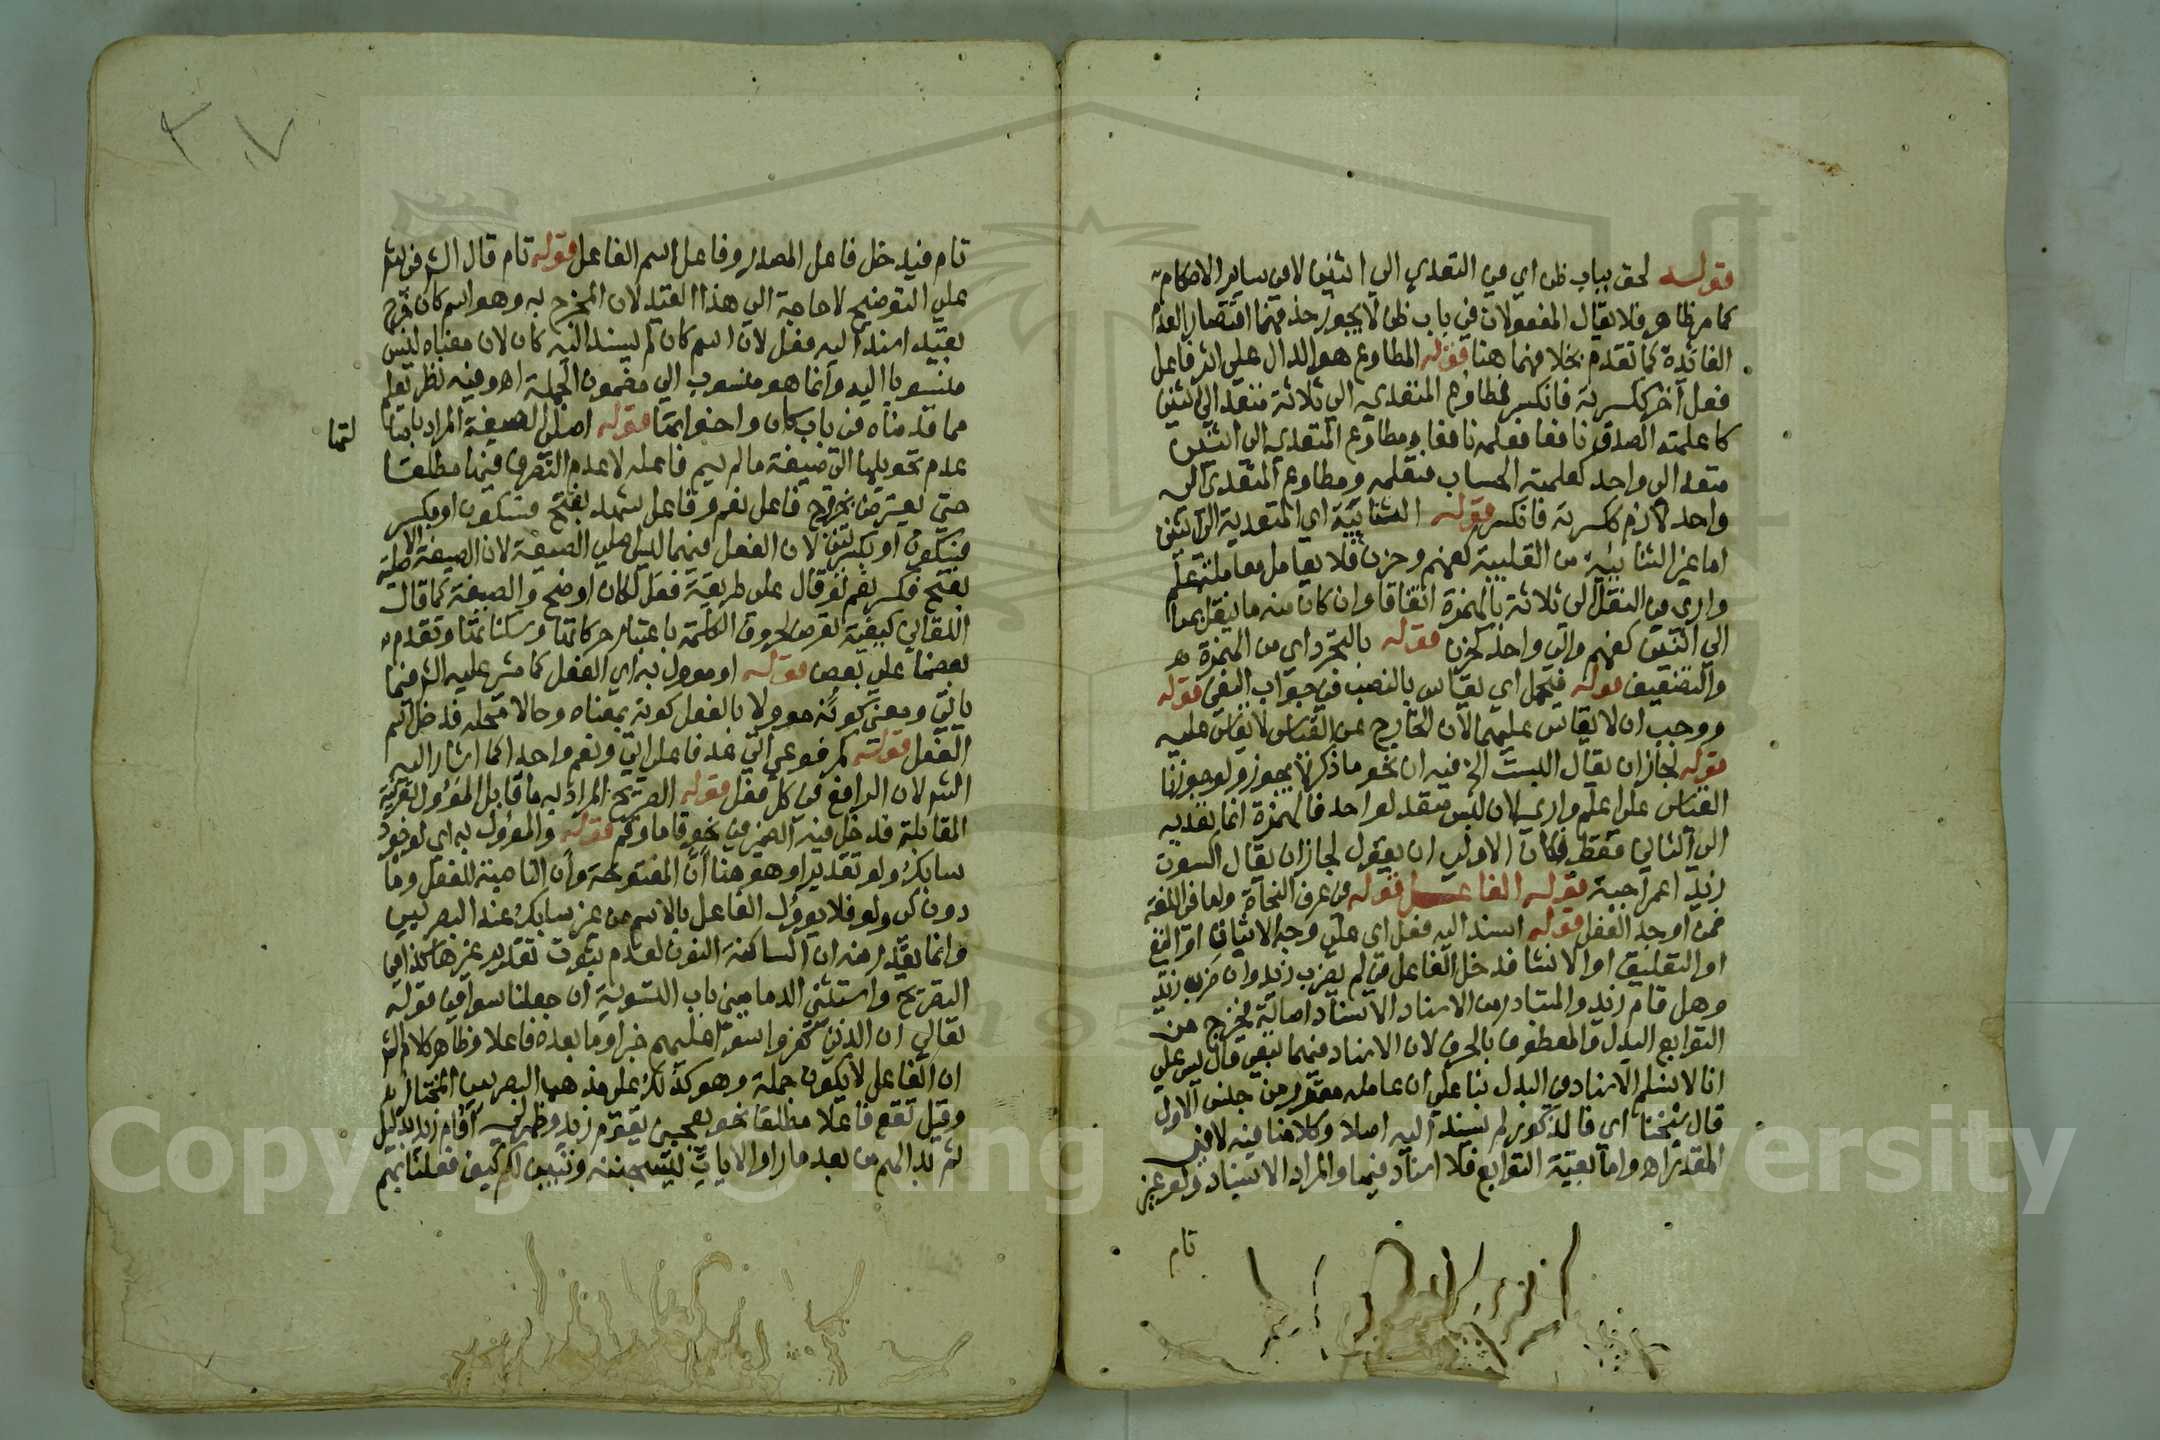 قوله لحق بباب ظن اي من التعدي الي اثنين لا في ساير الاحكام
كما مر ظاهر فلا يقال المفعولان في باب ظن لا يجوز حذفهما اقتصارا لعدم
الفائدة كما تقدم بخلافهما هنا قوله المطاوع هو الدال علي اثر فاعل
فعل آخر ككسرته فانكسر فمطاوع المتعدي الي ثلاثة متعد الي اثنين
كاعلمته الصدق نافعا فعلمه نافعا ومطاوع المتعدي الي اثنين
متعد الي واحد كعلمته الحساب فتعلمه ومطاوع المتعدي الي
واحد لازم ككسرته فانكسر قوله الثنائية اي المتعدية الي اثنين
اما غير الثنائية من القلبية كفهم وحزن فلا يعامل معاملة علم
واري من النقل الي ثلاثة بالهمزة اتفاقا وان كان منه ما ينقل بها
الي اثنين كفهم والي واحد كحزن قوله بالتجرد اي من الهمزة
والتضعيف قوله فيحمل اي يقاس بالنصب في جواب النفي قوله
ووجب ان لا يقاس عليهما لان الخارج عن القياس لا يقاس عليه
قوله لجاز ان يقال البست الخ فيه ان نحو ما ذكر لا يجوز ولو جوزنا
القياس علي اعلم واري لان لبس متعد لواحد فالهمزة انما تعديه
الي الثاني فقط فكان الاولي ان يقول لجاز ان يقال اكسوت
زيدا عمرا جبة قوله الفاعل قوله في عرف النحاة واما في اللغة
فمن اوجد الفعل قوله اسند اليه فعل اي علي وجه الاثبات او النفي
او التعليق او الانشا فدخل الفاعل في لم يضرب زيد وان ضرب زيد
وهل قام زيد والمتبادر من الاسناد الاسناد اصالة فخرج من
التوابع البدل والمعطوف بالحرف لان الاسناد فيهما تبعي قال يس علي
انا لا نسلم الاسناد في البدل بنا علي ان عامله مقدر من جنس الاول
قال شيخنا اي فالمذكور لم يسند اليه اصلا وكلامنا فيه لا في
المقدر اه واما بقية التوابع فلا اسناد فيها والمراد الاسناد ولو غير
تام
تام فيدخل فاعل المصدر وفاعل اسم الفاعل قوله تام قال الش في شرحه
علي التوضيح لا حاجة الي هذا القيد لان المخرج به وهو اسم كان خرج
بقيد اسند اليه فعل لان اسم كان لم يسند اليه كان لان معناه ليس
منسوبا اليه وانما هو منسوب الي مضمون الجملة اه وفيه نظر يعلم
مما قدمناه في باب كان واخواتها قوله اصلي الصيغة المراد باصالتها
لتها
عدم تحويلها الي صيغة ما لم يسم فاعله لا عدم التصرف فيها مطلقا
حتي يعترض بخروج فاعل نعم وفاعل شهد بفتح فسكون او بكسر
فسكون او بكسرتين لان الفعل فيهما ليس اصلي الصيغة لان الصيغة الاصلية
بفتح فكسر نعم لو قال علي طريقة فعل لكان اوضح والصيغة كما قال
اللقاني كيفية تعرض لحروف الكلمة باعتبار حركاتها وسكناتها وتقدم
بعضها علي بعض قوله او مؤول به اي الفعل كما مشي عليه الش فيما
ياتي ومعني كونه مؤولا بالفعل كونه بمعناه وحالا محله فدخل اسم
الفعل قوله كمرفوعي اتي عد فاعل اتي ونعم واحدا كما اشار اليه
الش لان الرافع في كل فعل قوله الصريح المراد به ما قابل المؤول بقرينة
المقابلة فدخل فيه الضمير في نحو قاما وقم قوله والمؤول به اي لوجود
سابك ولو تقديرا وهو هنا ان المفتوحة وان الناصبة للفعل وما
دون كي ولو فلا يؤول الفاعل بالاسم من غير سابك عند البصريين
وانما يقدر منه ان الساكنة النون لعدم ثبوت تقدير غيرها كذا في
التصريح واستثني الدماميني باب التسوية ان جعلنا سوا في قوله
تعالي ان الذين كفروا سوا عليهم خبرا وما بعده فاعلا وظاهر كلام الش
ان الفاعل لا يكون جملة وهو كذلك علي مذهب البصريين المختار
وقيل تقع فاعلا مطلقا نحو يعجبني يقوم زيد وظهر لي اقام زيد بدليل
ثم بدا لهم من بعد ما راوا الايات ليسجننه وتبين لكم كيف فعلنا بهم